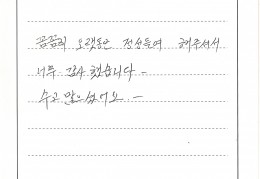 꼼꼼히 오랫동안 정성들여 해주셔서
너무 감사했습니다-
수고 많으셨어요.-